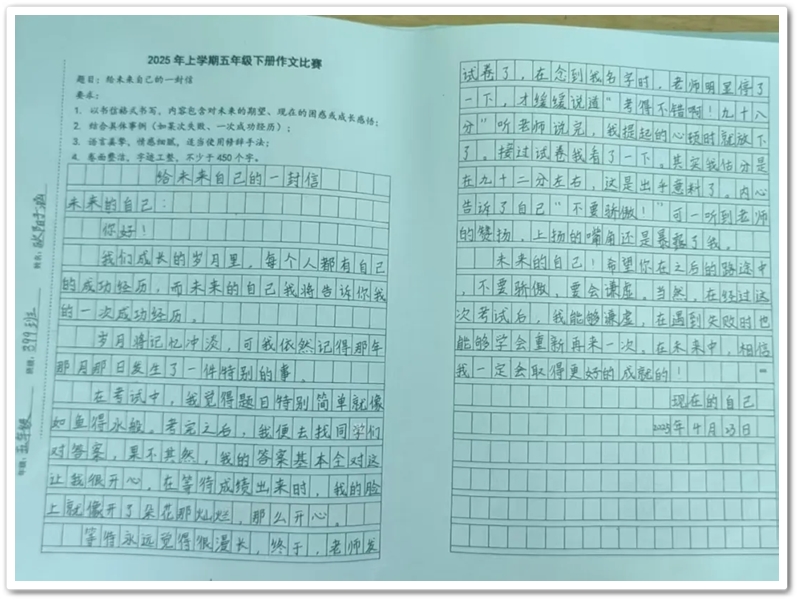 2025 年上学期五年级下册作文比赛
题目：给未来自己的一封信
要求：
1. 以书信格式书写，内容包含对未来的期望、现在的困惑或成长感悟；
2. 结合具体事例（如某次失败、一次成功经历）；
3. 语言真挚，情感细腻，适当使用修辞手法；
4. 卷面整洁，字迹工整，不少于 450 个字。
给未来自己的一封信
未来的自己：
你好！
我们成长的岁月里，每个人都有自己
的成功经历，而未来的自己我将告诉你我
的一次成功经历。
岁月将记忆冲淡，可我依然记得那年
那月那日发生了一件特别的事。
在考试中，我觉得题目特别简单就像
如鱼得水般。考完之后，我便去找同学们
对答案，果不其然，我的答案基本全对这
让我很开心，在等待成绩出来时，我的脸
上就像开了朵花那灿烂，那么开心。
等待永远觉得很漫长，终于，老师发
姓名：
班级：399班
年级：五年级
试卷了，在念到我名字时，老师明显停了
一下，才缓缓说道“考得不错啊！九十八
分”听老师说完，我提起的心顿时就放下
了。接过试卷我看了一下。其实我估分是
在九十二分左右，这是出乎意料了。内心
告诉了自己“不要骄傲！”可一听到老师
的赞扬，上扬的嘴角还是暴露了我。
未来的自己！希望你在之后的路途中
，不要骄傲，要会谦虚。当然，在经过这
次考试后，我能够谦虚，在遇到失败时也
能够学会重新再来一次。在未来中，相信
我一定会取得更好的成就的！
现在的自己
2025年4月23日